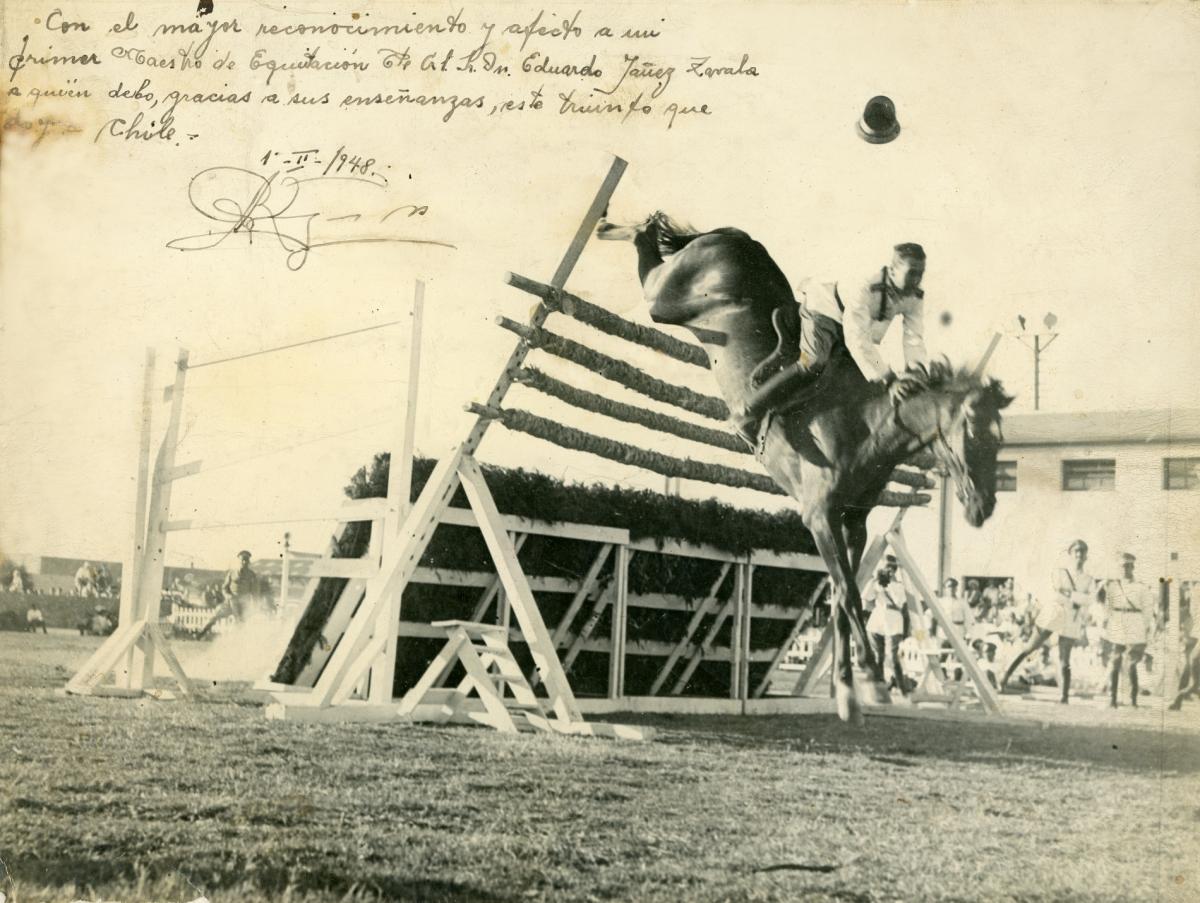 Con el mayor reconocimiento y afecto a mi
primer Maestro de Equitación Tte Crl. Sr. Dn. Eduardo Yáñez Zavala
a quien debo, gracias a sus enseñanzas, este triunfo que
doy a Chile.-
1-II-1948.